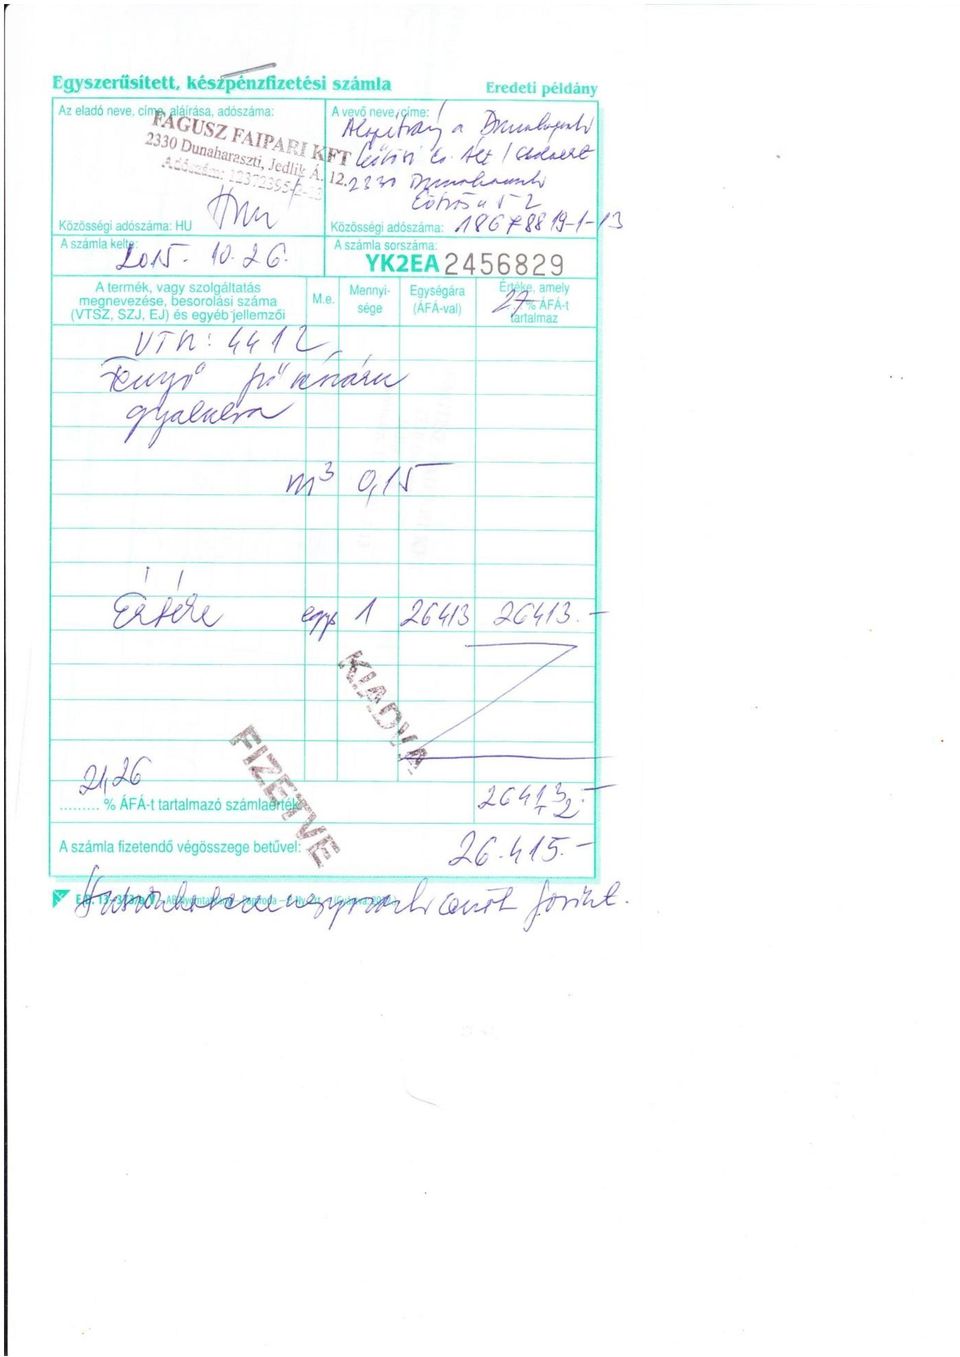 Egyszerűsített, készpénzfizetési számla
Eredeti példány
Az eladó neve, címe, aláírása, adószáma:
FAGUSZ FAIPARI KFT
2330 Dunaharaszti, Jedlik Á. 12.
Adószám:
Közösségi adószáma: HU
A vevő neve, címe:
Alapítvány a Dunaharaszti
2330 Dunaharaszti
Eötvös u 52
Közösségi adószáma: 18678819-1-13
A számla kelte:
2015. 10.26.
A számla sorszáma:
YK2EA 2456829
A termék, vagy szolgáltatás megnevezése, besorolási száma (VTSZ, SZJ, EJ) és egyéb jellemzői
M.e.
Mennyisége
Egységára (ÁFÁ-val)
Értéke, amely 27 % ÁFÁ-t tartalmaz
VTN: 4412
Fenyő fűrészáru
gyalulva
m³ 0,15
Értéke egys 1 26413 26413.-
KIADVA
FIZETVE
21,26
......... % ÁFÁ-t tartalmazó számlaérték
26413.-
+2
A számla fizetendő végösszege betűvel:
26.415.-
Huszonhatezernégyszáztizenöt forint.